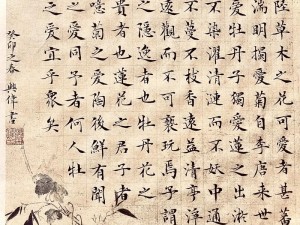 陸草木之甚蕃
淵明獨愛菊自李唐來世
愛牡丹予獨愛蓮之出淤
不染濯清漣而不妖中通
不蔓不枝香遠益清亭
遠觀而不可褻玩焉予謂
菊之隱逸者也牡丹花之
貴者也蓮花之君子者
噫菊之愛陶後鮮有聞
之愛同予者何人牡
之愛宜乎眾矣
癸卯之春 書